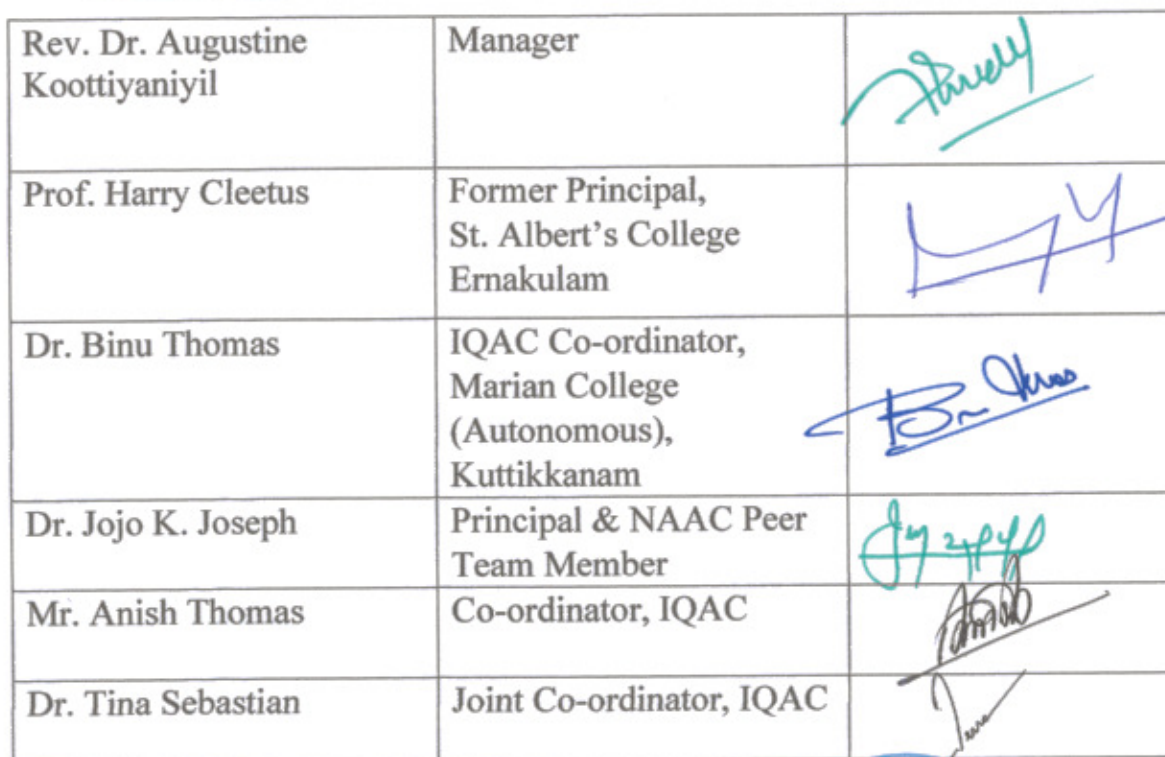 Rev. Dr. Augustine
Koottiyaniyil
Manager
Prof. Harry Cleetus
Former Principal,
St. Albert's College
Ernakulam
Dr. Binu Thomas
IQAC Co-ordinator,
Marian College
(Autonomous),
Kuttikkanam
Dr. Jojo K. Joseph
Principal & NAAC Peer
Team Member
Mr. Anish Thomas
Co-ordinator, IQAC
Dr. Tina Sebastian
Joint Co-ordinator, IQAC